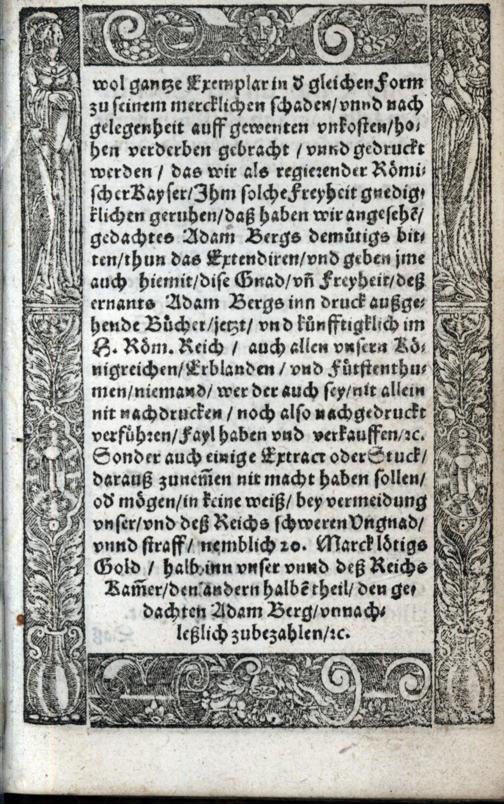 wol gantze Exemplar in ď gleichen Form
zu seinem mercklichen schaden/vnnd nach
gelegenheit auff gewenten vnkosten/ho-
hen verderben gebracht / vnnd gedruckt
werden / das wir als regierender Römi-
scher Kayser/Ihm solche Freyheit gnedig-
klichen geruhen/daß haben wir angesehē/
gedachtes Adam Bergs demütigs bit-
ten/thun das Extendiren/vnd geben jme
auch hiemit/dise Gnad/vn̄ Freyheit/deß
ernants Adam Bergs inn druck außge-
hende Bücher/jetzt/ vnd künfftigklich im
H. Röm. Reich / auch allen vnsern Kö-
nigreichen/Erblanden / vnd Fürstenthu-
men/niemand/ wer der auch sey/nit allein
nit nachdrucken / noch also nachgedruckt
verführen/Fayl haben vnd verkauffen/ꝛc.
Sonder auch einige Extract oder Stuck/
darauß zunem̄en nit macht haben sollen/
oď mögen/in keine weiß/ bey vermeidung
vnser/vnd deß Reichs schweren Vngnad/
vnnd straff/ nemblich 20. Marck lötigs
Gold / halb inn vnser vnnd deß Reichs
Kam̄er/den andern halbē theil/ den ge-
dachten Adam Berg/vnnach-
leßlich zubezahlen/ꝛc.